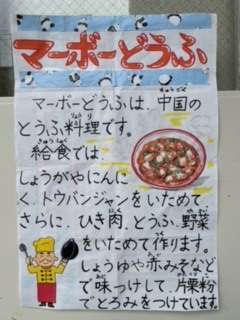 マーボーどうふ
マーボーどうふは、中国の
とうふ料理です。
給食では、
しょうがやにんに
く、トウバンジャンをいためて、
さらに、ひき肉、とうふ、野菜
をいためて作ります。
しょうゆや赤みそなど
で味つけして、片栗粉
でとろみをつけています。